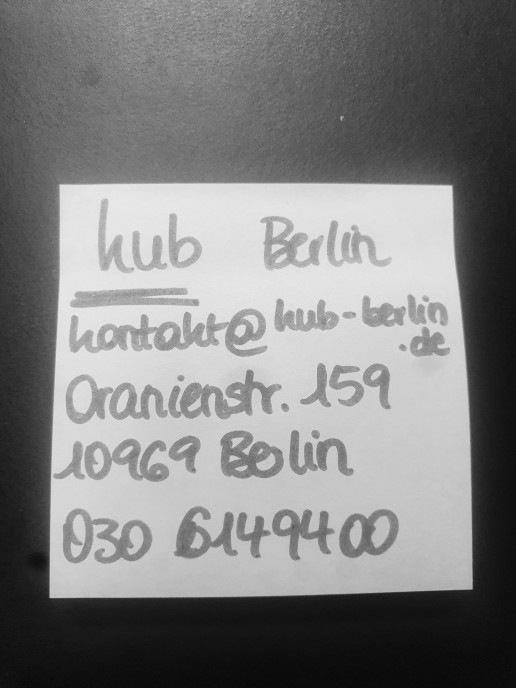 hub Berlin
kontakt@hub-berlin
.de
Oranienstr. 159
10969 Berlin
030 6149400